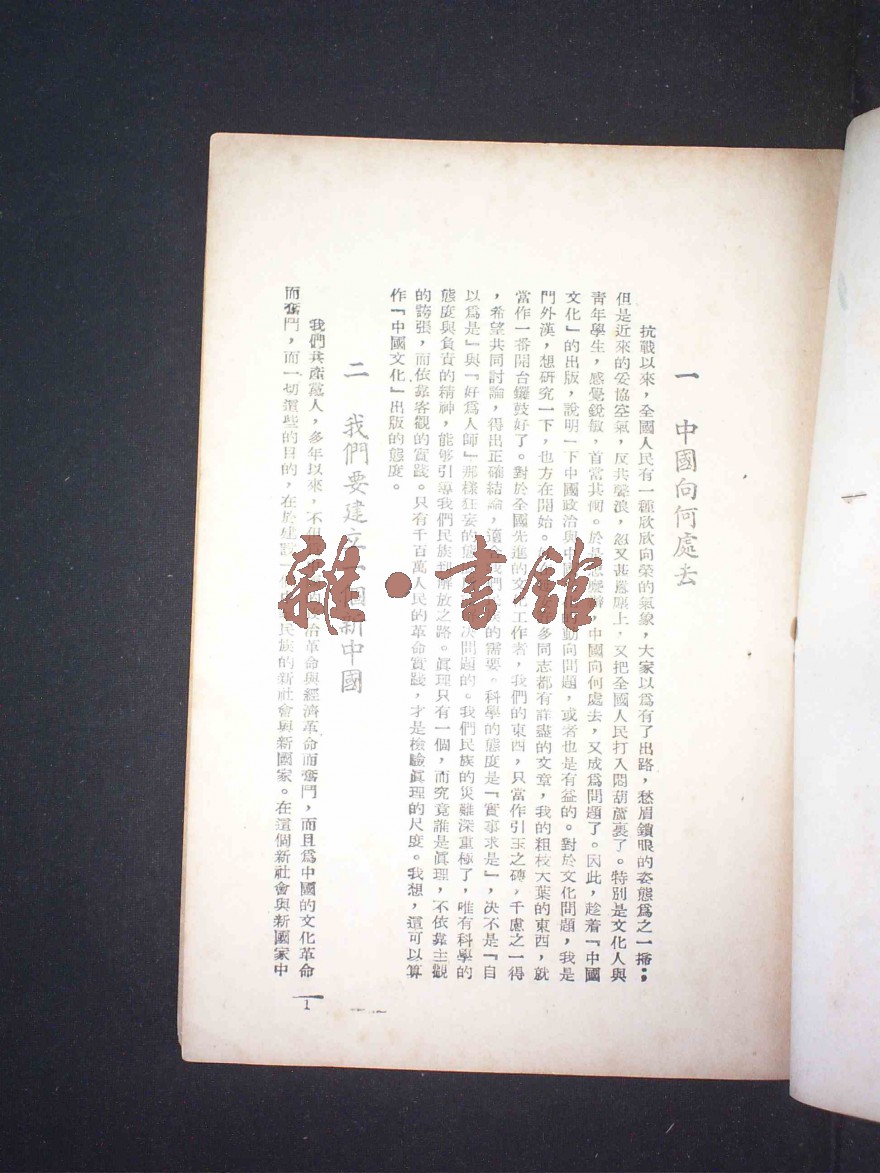 一 中國向何處去
抗戰以來，全國人民有一種欣欣向榮的氣象，大家以爲有了出路，愁眉鎖眼的姿態爲之一掃；
但是近來的妥協空氣，反共聲浪，忽又甚囂塵上，又把全國人民打入悶葫蘆裏了。特別是文化人與
青年學生，感覺銳敏，首當其衝。於是怎麼辦，中國向何處去，又成爲問題了。因此，趁着『中國
文化』的出版，說明一下中國政治與中國動向問題，或者也是有益的。對於文化問題，我是
門外漢，想研究一下，也方在開始。多同志都有詳盡的文章，我的粗枝大葉的東西，就
當作一番開台鑼鼓好了。對於全國先進的文化工作者，我們的東西，只當作引玉之磚，千慮之一得
，希望共同討論，得出正確結論，適我們的需要。科學的態度是『實事求是』，決不是『自
以爲是』與『好爲人師』那樣狂妄的決問題的。我們民族的災難深重極了，唯有科學的
態度與負責的精神，能够引導我們民族放之路。眞理只有一個，而究竟誰是眞理，不依靠主觀
的誇張，而依靠客觀的實踐。只有千百萬人民的革命實踐，才是檢驗眞理的尺度。我想，這可以算
作『中國文化』出版的態度。
二 我們要建立一個新中國
我們共產黨人，多年以來，不但政治革命與經濟革命而奮鬥，而且爲中國的文化革命
而奮鬥，而一切這些的目的，在於建設民族的新社會與新國家。在這個新社會與新國家中
1
雜·書館